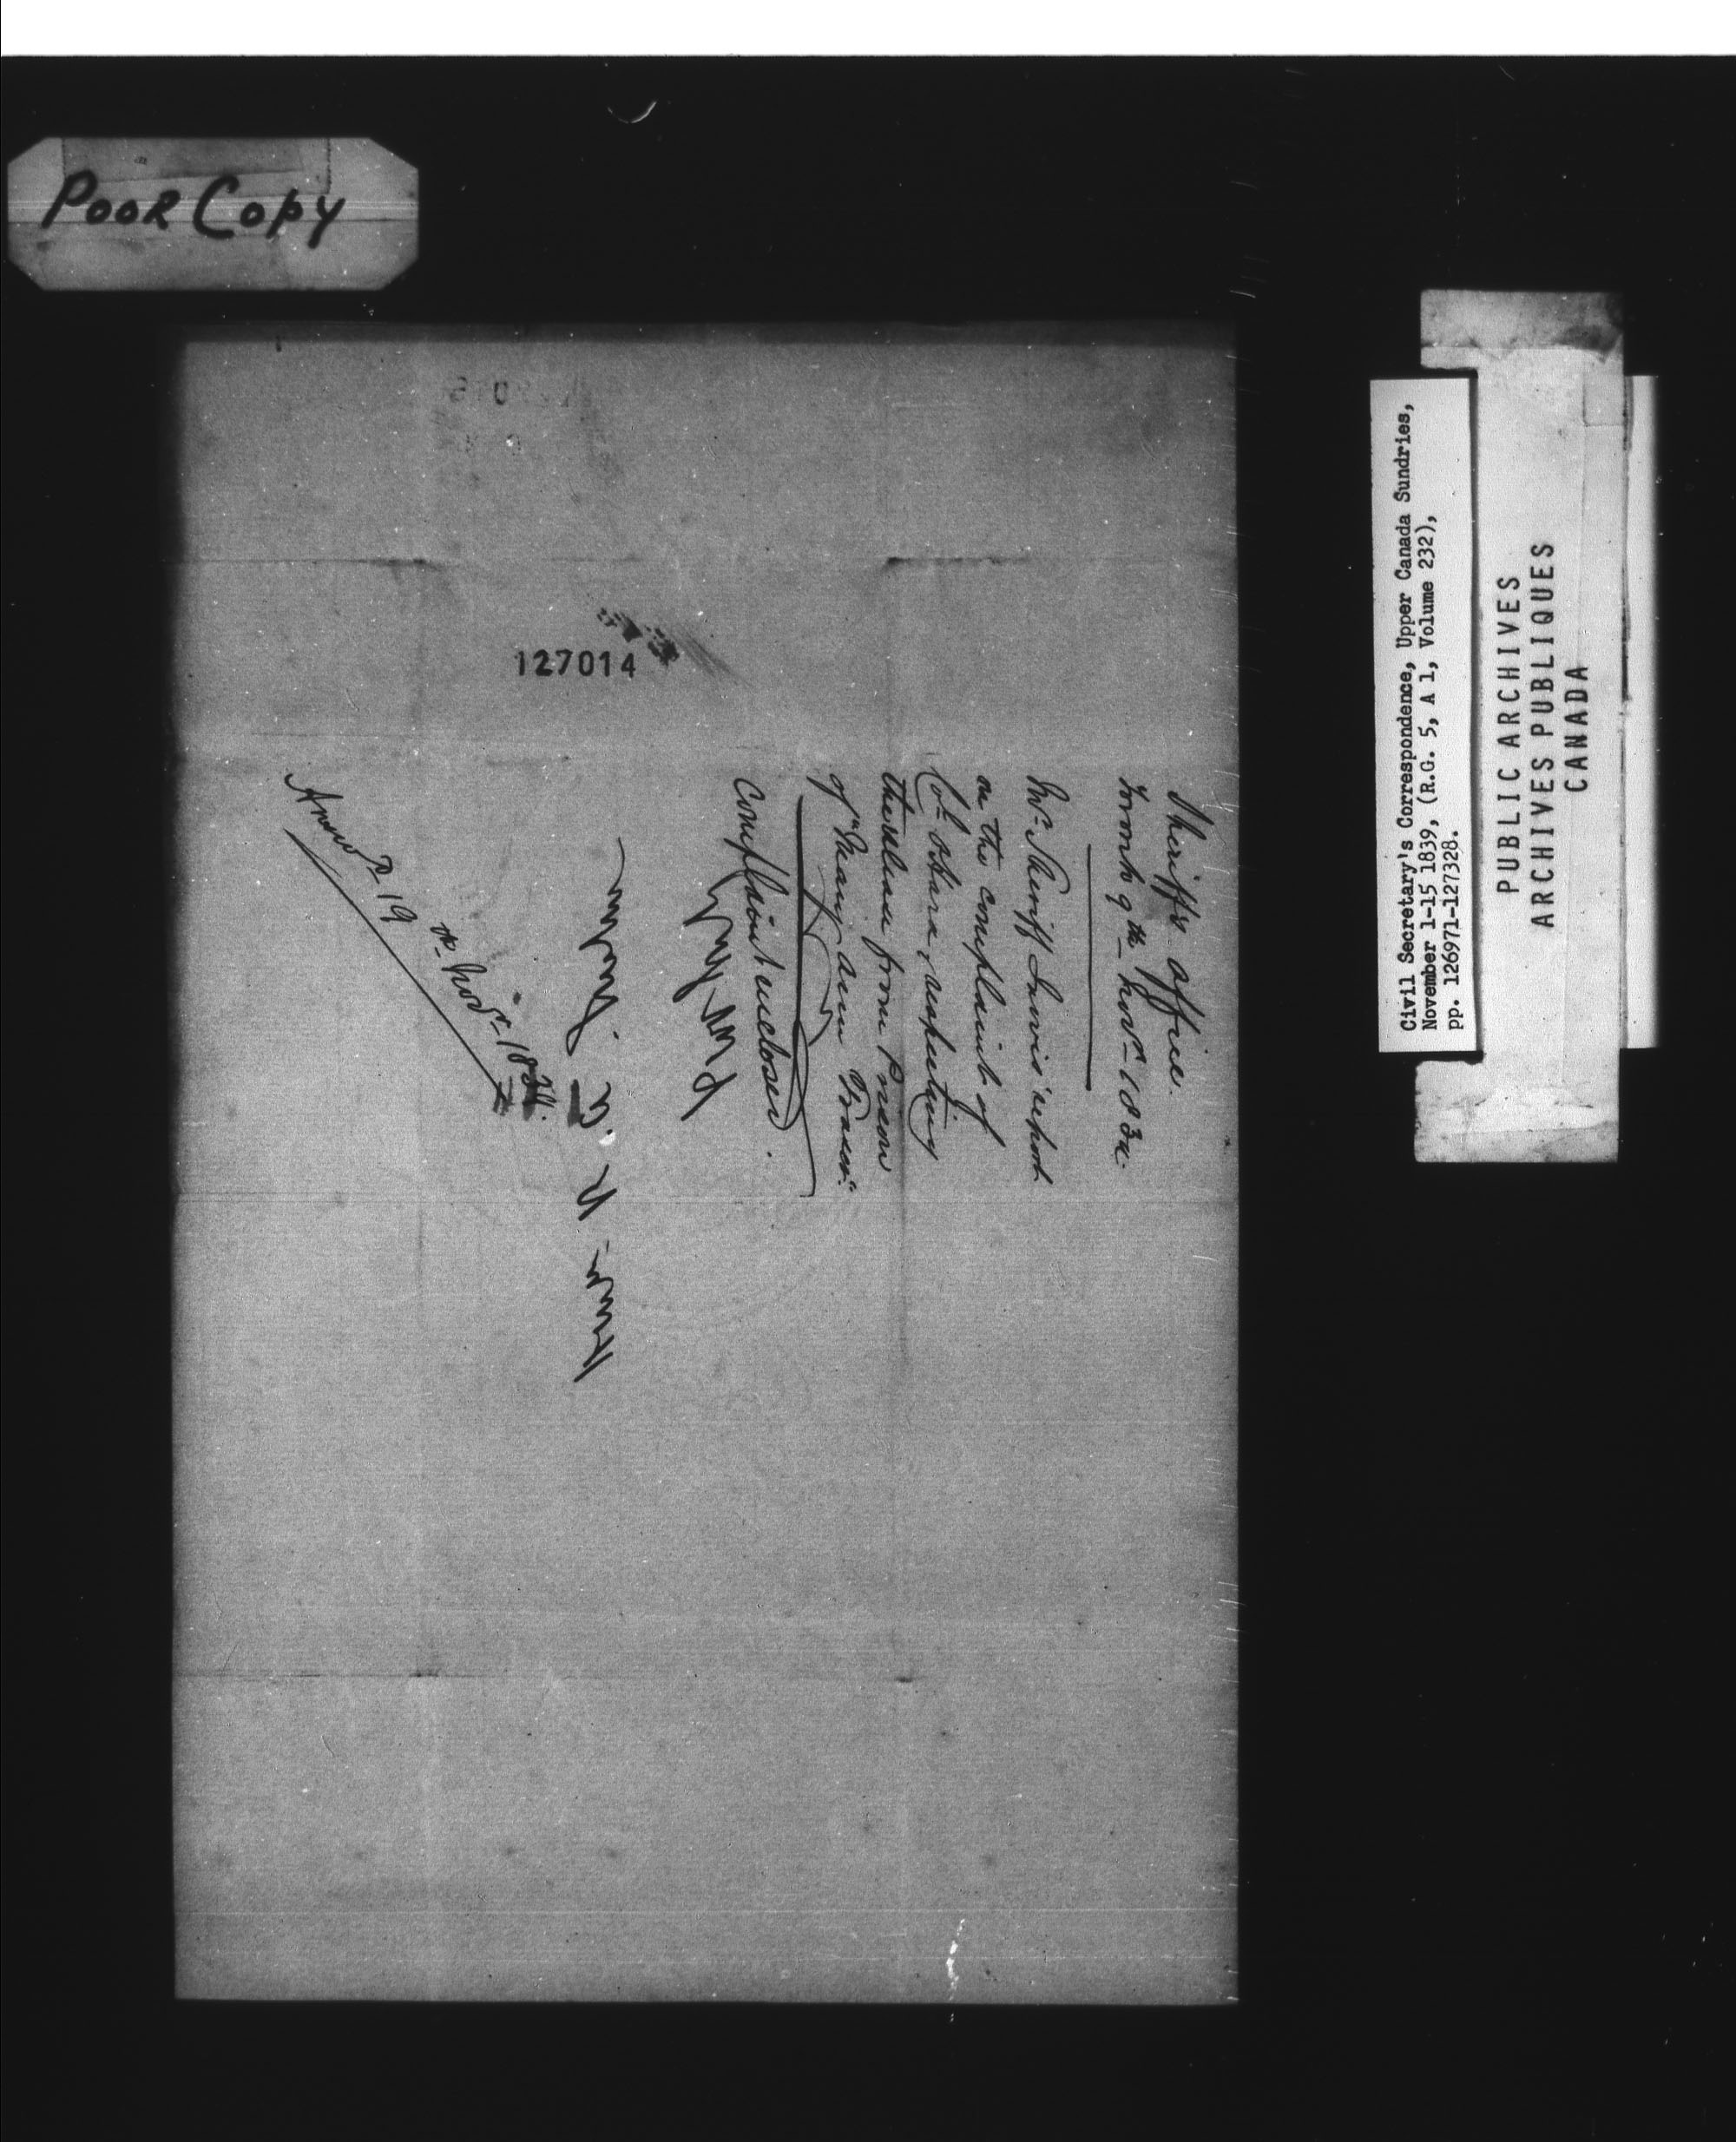 Poor Copy
127014
Sheriff's office.
Toronto 9th Novr 1839.
Mr. Sheriff Jarvis' report
on the complaint of
Col. O'Hara, respecting
the release from Prison
of "Mary Ann Fraser."
Complaint enclosed.
Answd 19
th Novr 1839.
Civil Secretary's Correspondence, Upper Canada Sundries,
November 1-15 1839, (R.G. 5, A 1, Volume 232),
pp. 126971-127328.
PUBLIC ARCHIVES
ARCHIVES PUBLIQUES
CANADA